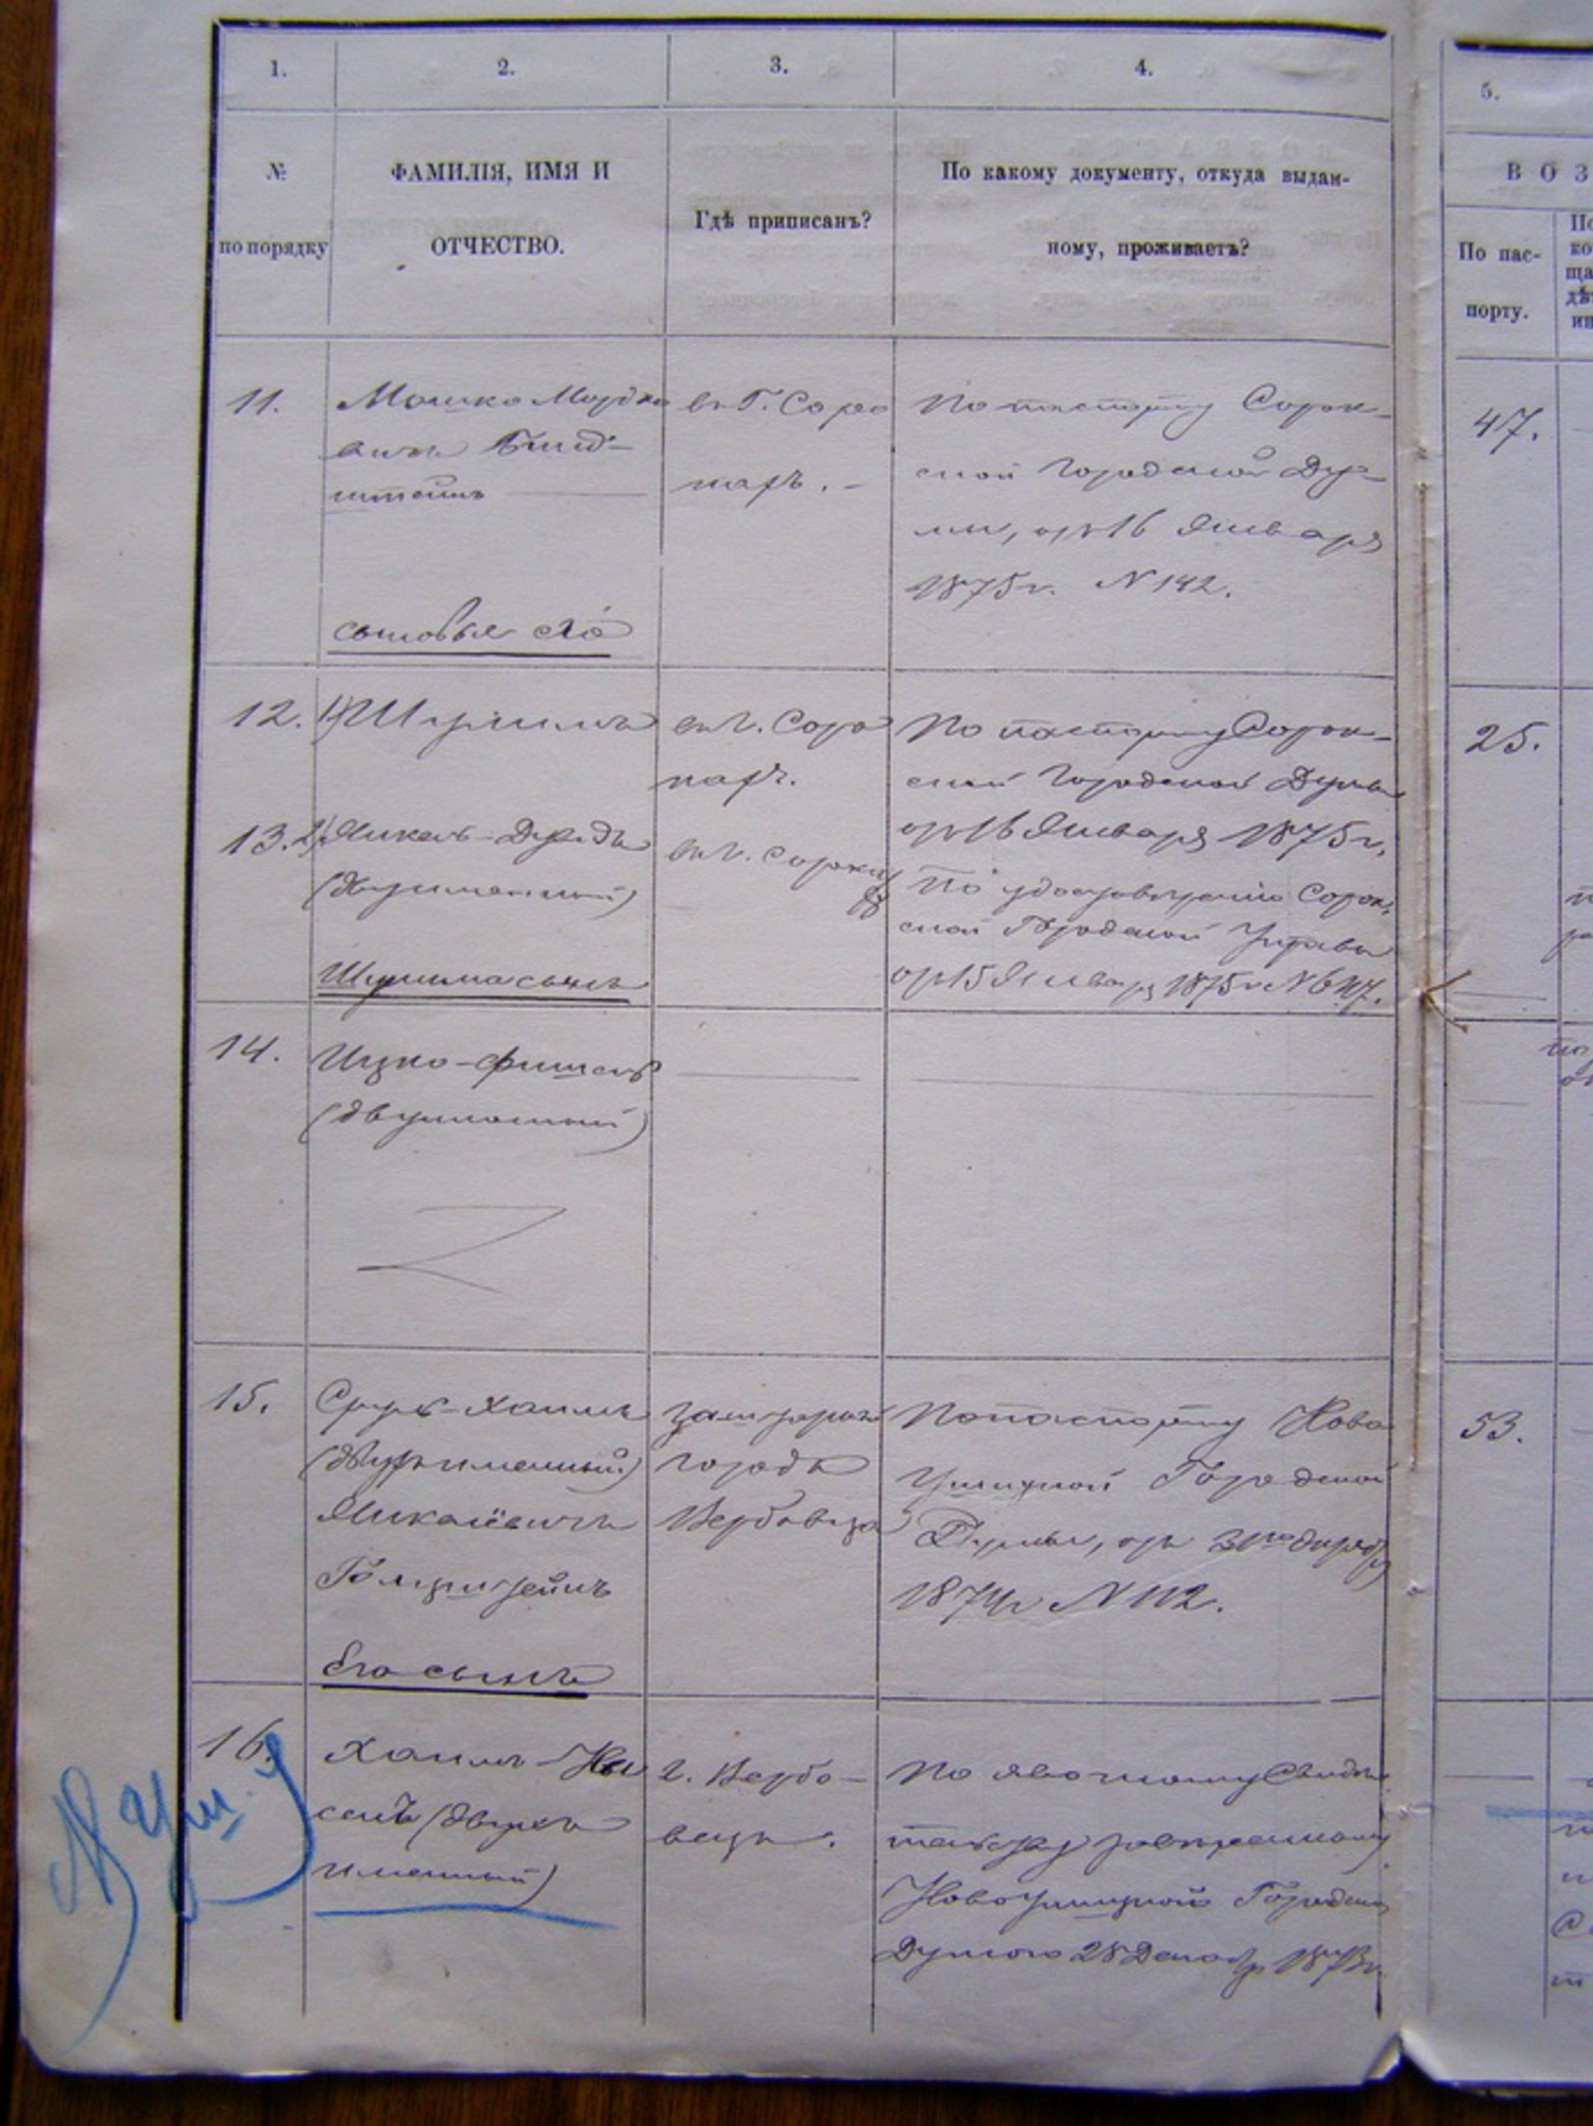 1.
2.
3.
4.
5.
№
по порядку
ФАМИЛІЯ, ИМЯ И
ОТЧЕСТВО.
Гдѣ приписанъ?
По какому документу, откуда выдан-
ному, проживаетъ?
В О З
По пас-
порту.
11.
Мошко Мордко
вичъ
штейнъ
сыновья его
въ Г. Соро
кахъ. –
По паспорту Сорок-
ской Городской Ду-
мы, отъ 16 Января
1875 г. N 142.
47.
12. 1)
въ г. Соро
кахъ.
По паспорту Сорок-
ской Городской Думы
отъ 16 Января 1875 г.
25.
13. 2)
(двуименный)
сынъ
въ г. Сорокахъ
По удостовѣренію Сорок-
ской Городской Управы
отъ 15 Января 1875 г. N 647.
14.
Ицко-Фишель
(двуименный)
15.
Сруль-Хаимъ
(двухъименный)
Гольдштейнъ
Его сынъ
заштатный
городъ
Вербовецъ
По паспорту Ново
Ушицкой Городской
Думы, отъ 31го
1874 г. N 112.
53.
16.
Хаимъ-Ну
сонъ (двухъ
именный)
г. Вербо-
вецъ.
По явочному Свидѣ
тельству
Ново Ушицкой Городской
Думою 28 Декабр 1873 г.